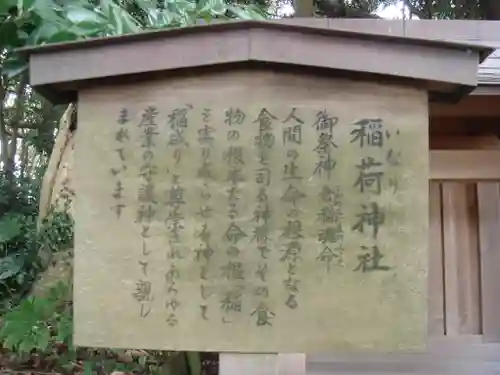 稲荷神社
いなり
御祭神 倉稲魂命
人間の生命の根源となる
食物を司る神様でその食
物の根本たる命の根「稲」
を実り成らせる神として
「稲成り」と尊崇され あらゆる
産業の守護神として親し
まれています